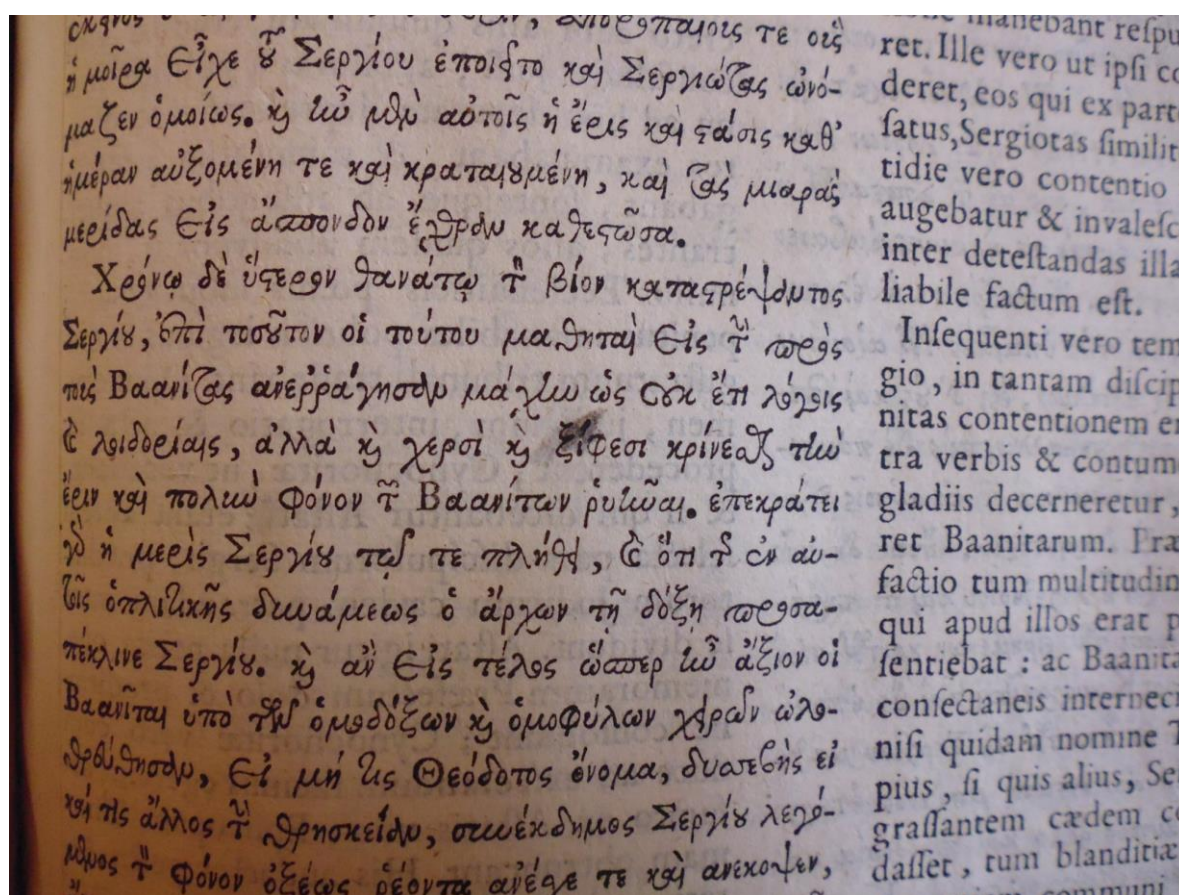 τε οἷς
ἡ μοῖρα εἶχε τοῦ Σεργίου ἐποιεῖτο καὶ Σεργιώτας ὠνό-
μαζεν ὁμοίως. ϗ ἦν μὲν αὐτοῖς ἡ ἔρις καὶ στάσις καθ'
ἡμέραν αὐξομένη τε καὶ κραταιουμένη, καὶ τὰς μιαρὰς
μερίδας εἰς ἄσπονδον ἔχθραν καθεστῶσα.
Χρόνῳ δὲ ὕστερον θανάτῳ τὸν βίον καταστρέψαντος
Σεργίου, ἐπὶ τοσοῦτον οἱ τούτου μαθηταὶ εἰς τὴν πρὸς
τοὺς Βαανίτας ἀνερράγησαν μάχην ὡς οὐκ ἔτι λόγοις
καὶ λοιδορίαις, ἀλλὰ ϗ χερσὶ ϗ ξίφεσι κρίνεσθαι τὴν
ἔριν καὶ πολὺν φόνον τῶν Βαανίτων ῥυῆναι. ἐπεκράτει
γὰρ ἡ μερὶς Σεργίου τῷ τε πλήθει, καὶ ὅτι τῆς ἐν αὐ-
τοῖς ὁπλιτικῆς δυνάμεως ὁ ἄρχων τῇ δόξῃ προσα-
πέκλινε Σεργίου. ϗ ἂν εἰς τέλος ὥσπερ ἦν ἄξιον οἱ
Βαανῖται ὑπὸ τῶν ὁμοδόξων ϗ ὁμοφύλων χειρῶν ὠλο-
θρεύθησαν, εἰ μή τις Θεόδοτος ὄνομα, δυσσεβὴς εἰ
καί τις ἄλλος τὴν θρησκείαν, συνέκδημος Σεργίου λεγό-
μενος τὸν φόνον ὀξέως ῥέοντα ἀνέσχε τε καὶ ἀνεκοψεν,
manebant respu
ret. Ille vero ut ipsi co
deret, eos qui ex parte
satus, Sergiotas similit
tidie vero contentio
augebatur & invalesc
inter detestandas illa
liabile factum est.
Insequenti vero tem
gio, in tantam discip
nitas contentionem e
tra verbis & contum
gladiis decerneretur,
ret Baanitarum. Præ
factio tum multitudin
qui apud illos erat p
sentiebat : ac Baanita
consectaneis interneci
nisi quidam nomine T
pius, si quis alius, Se
grassantem cædem c
dasset, tum blanditiæ
communi